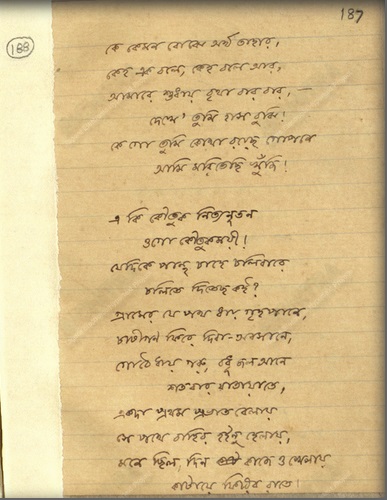 187
188
কে কেমন বোঝে অর্থ তাহার,
কেহ এক বলে, কেহ বলে আর,
আমারে শুধায় বৃথা বার বার, —
দেখে' তুমি হাস বুঝি!
কে গো তুমি কোথা রয়েছ গোপনে
আমি মরিতেছি খুঁজি!
এ কি কৌতুক নিত্যনূতন
ওগো কৌতুকময়ী!
যেদিকে পান্থ চাহে চলিবারে
চলিতে দিতেছ কই?
গ্রামের যে পথ ধায় গৃহপানে,
চাষীগণ ফিরে দিবা-অবসানে,
গোঠে ধায় গরু, বধূ জল আনে
শতবার যাতায়াতে,
একদা প্রথম প্রভাত বেলায়
সে পথে বাহির হইনু হেলায়,
মনে ছিল, দিন কাজে ও খেলায়
কাটায়ে ফিরিব রাতে!